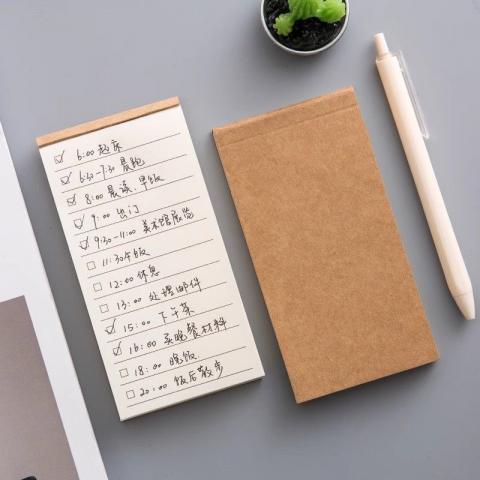 6:00 起床
6:30-7:30 晨跑
8:00 晨读、早饭
9:00 出门
9:30-11:00 美术馆展览
11:30 午饭
12:00 休息
13:00 处理邮件
15:00 下午茶
16:00 买晚餐材料
18:00 晚饭
20:00 饭后散步